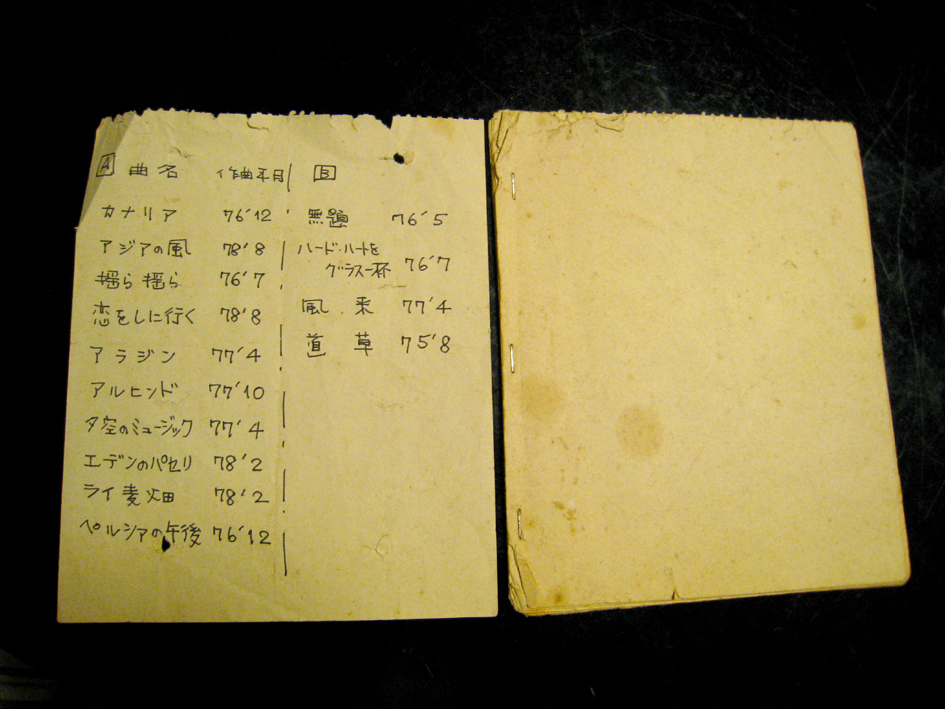 A 曲名 作曲年月
カナリア 76'12
アジアの風 78'8
揺ら揺ら 76'7
恋をしに行く 78'8
アラジン 77'4
アルヒンド 77'10
夕空のミュージック 77'4
エデンのパセリ 78'2
ライ麦畑 78'2
ペルシァの午後 76'12
B
無題 76'5
ハード・ハートを
グラス一杯 76'7
風来 77'4
道草 75'8